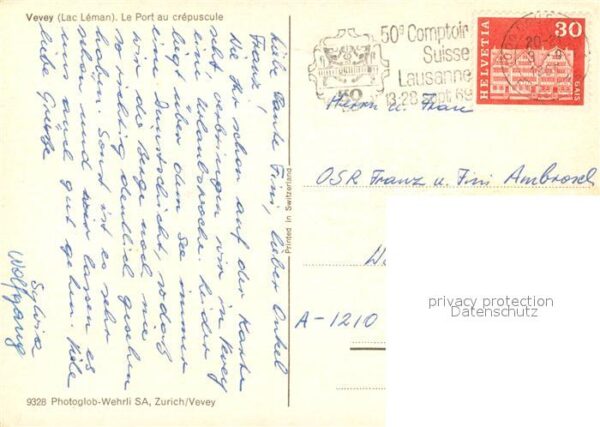 Vevey (Lac Léman). Le Port au crépuscule
Liebe Tante Fini, lieber Onkel
Franz!
Wie Ihr schon auf der Karte
seht, verbringen wir in Vevey
eine Urlaubswoche. Leider
liegt über dem See immer
eine Dunstschicht, sodaß
wir die Berge noch nie
so richtig deutlich gesehen
haben. Sonst ist es sehr
schön und wir lassen es
uns auch gut gehen. Viele
liebe Grüße
Sylvia
Wolfgang
Printed in Switzerland
9328 Photoglob-Wehrli SA, Zurich/Vevey
50e Comptoir
Suisse
Lausanne
13-28 Sept 69
50
HELVETIA
30
GAIS
Herrn u. Frau
OSR Franz u. Fini Ambrosch
A-1210
privacy protection
Datenschutz